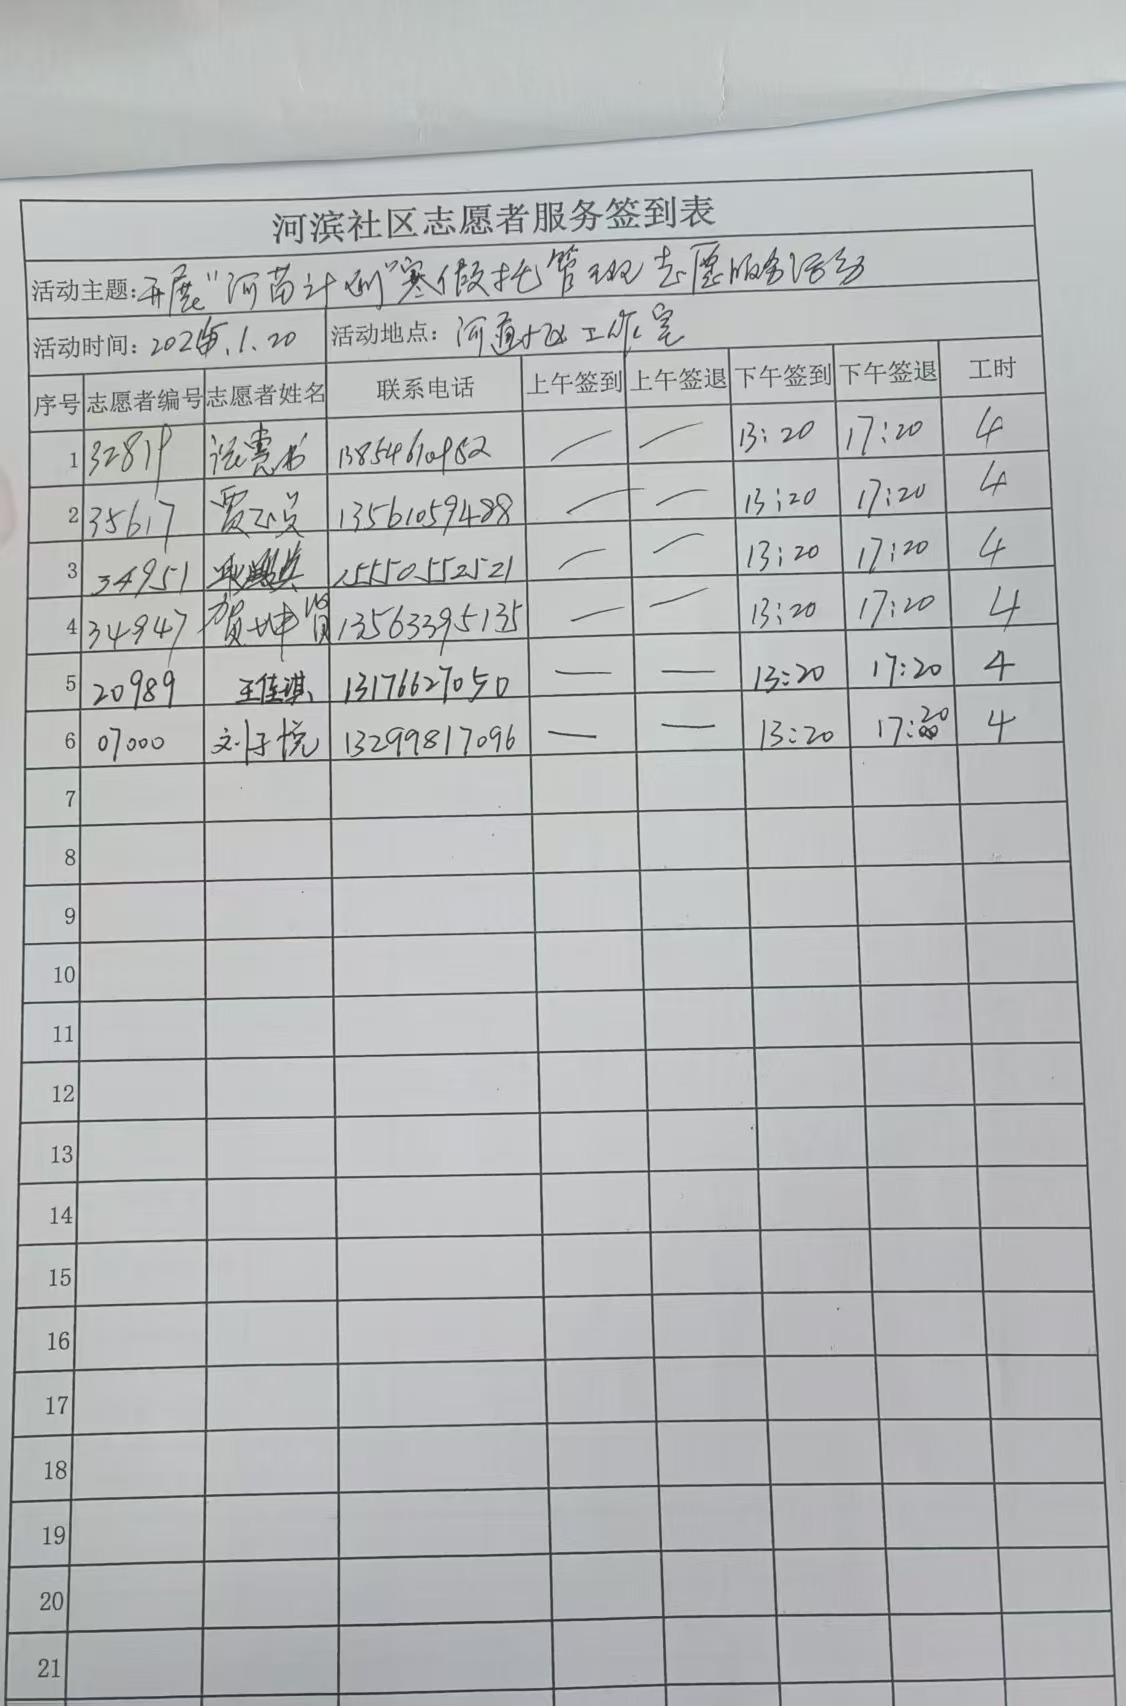 河滨社区志愿者服务签到表
活动主题:开展"河苗计划"寒假托管班志愿服务活动
活动时间:2025.1.20 活动地点:河道社区工作室
序号 志愿者编号 志愿者姓名 联系电话 上午签到 上午签退 下午签到 下午签退 工时
1 32819 — — 13:20 17:20 4
2 35617 贾 13561059488 — — 13:20 17:20 4
3 34951 15550552521 — — 13:20 17:20 4
4 34947 贺坤贤 13563395135 — — 13:20 17:20 4
5 20989 王佳琪 13176627050 — — 13:20 17:20 4
6 07000 刘子悦 13299817096 — — 13:20 17:20 4
7
8
9
10
11
12
13
14
15
16
17
18
19
20
21